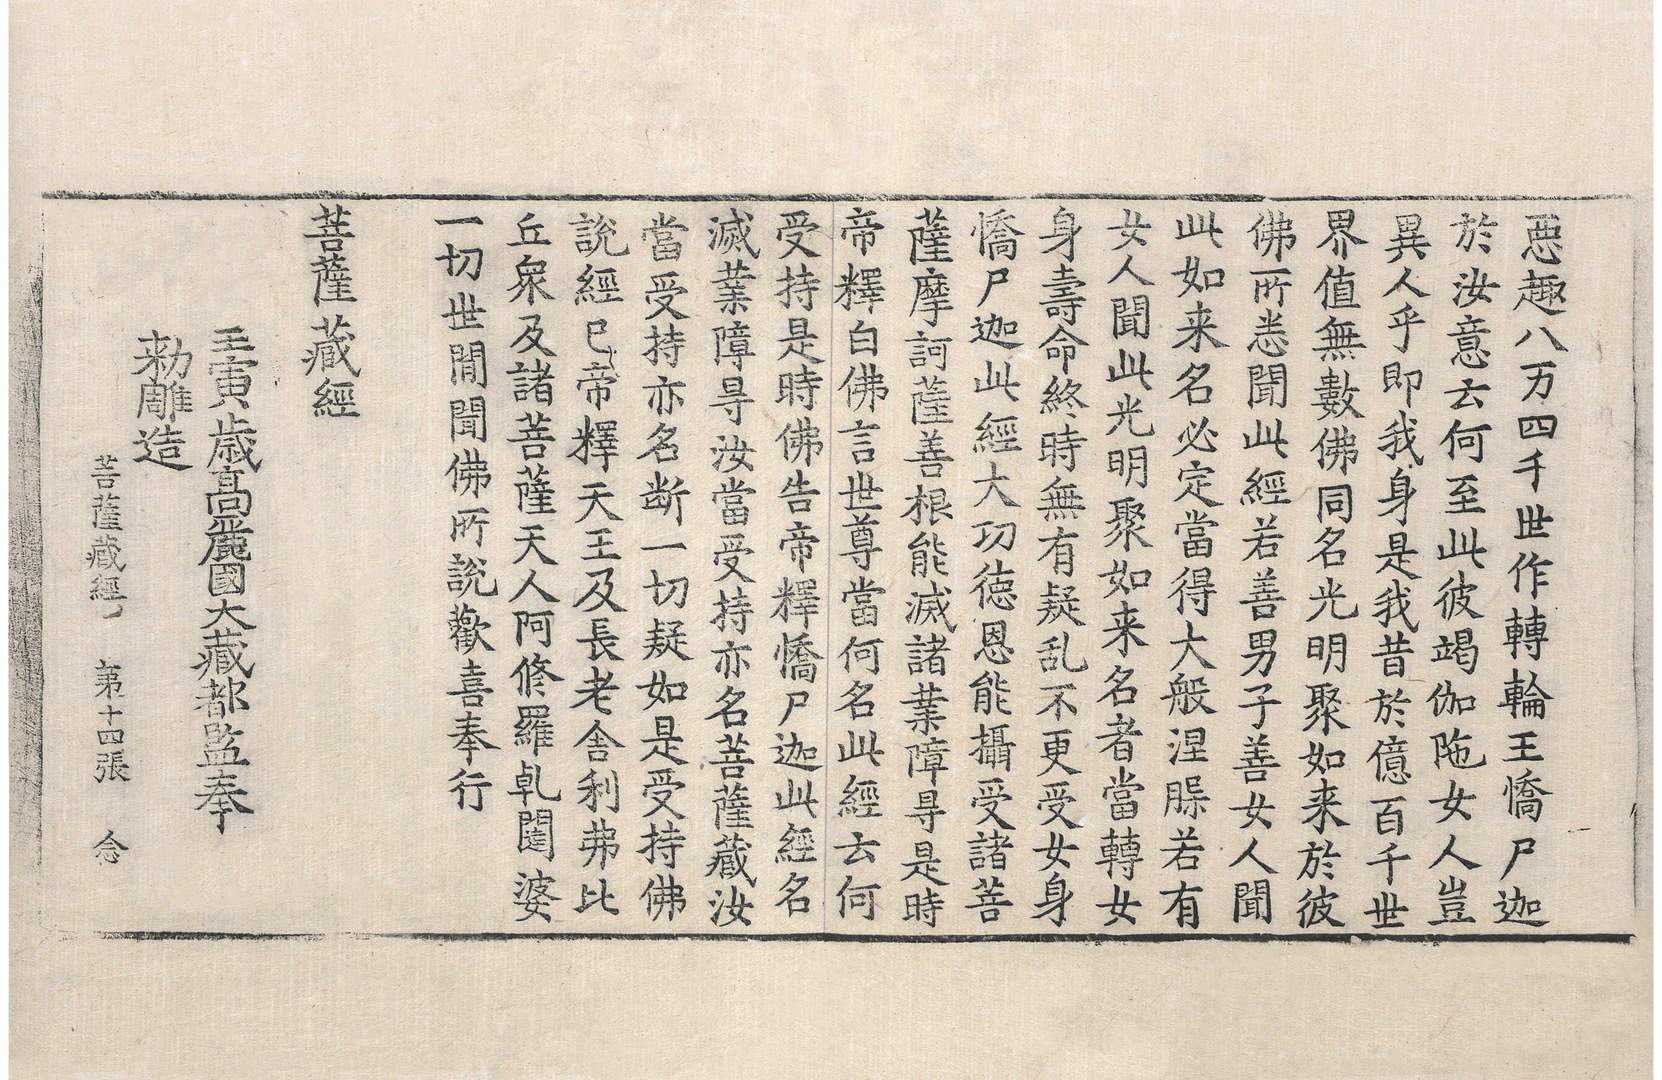 惡趣八万四千世作轉輪王憍尸迦
於汝意云何至此彼竭伽陁女人豈
異人乎即我身是我昔於億百千世
界值無數佛同名光明聚如来於彼
佛所悉聞此經若善男子善女人聞
此如来名必定當得大般涅槃若有
女人聞此光明聚如来名者當轉女
身壽命終時無有疑乱不更受女身
憍尸迦此經大功德恩能攝受諸菩
薩摩訶薩善根能滅諸業障㝵是時
帝釋白佛言世尊當何名此經云何
受持是時佛告帝釋憍尸迦此經名
滅業障㝵汝當受持亦名菩薩藏汝
當受持亦名断一切疑如是受持佛
說經已帝釋天王及長老舍利弗比
丘衆及諸菩薩天人阿脩羅乹闥婆
一切世閒聞佛所說歡喜奉行
菩薩藏經
壬寅歳高麗國大藏都監奉
勑雕造
菩薩藏經 第十四張 念